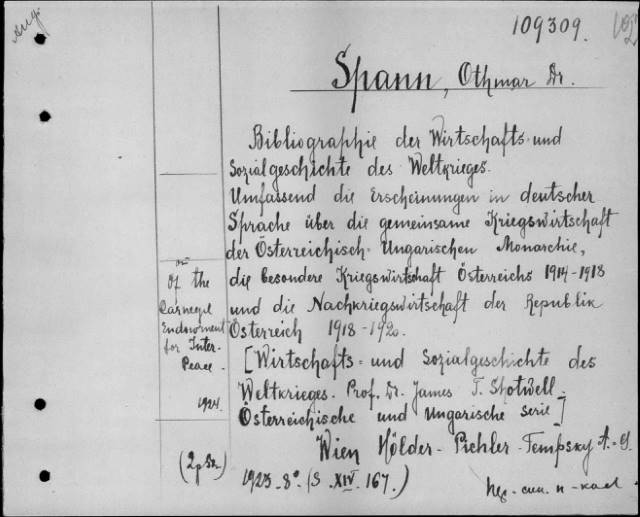 Aug.
109309.
Spann, Othmar Dr.
Bibliographie der Wirtschafts- und
Sozialgeschichte des Weltkrieges.
Umfassend die Erscheinungen in deutscher
Sprache über die gemeinsame Kriegswirtschaft
der Österreichisch-Ungarischen Monarchie,
die besondere Kriegswirtschaft Österreichs 1914-1918
und die Nachkriegswirtschaft der Republik
Österreich 1918-1920.
[Wirtschafts- und Sozialgeschichte des
Weltkrieges. Prof. Dr. James T. Shotwell -
Österreichische und Ungarische Serie]
Wien Hölder-Pichler-Tempsky A.-G.
1923. 8° (S. XIV. 167.)
of the
Carnegie
Endowment
for Inter-
Peace.
1924.